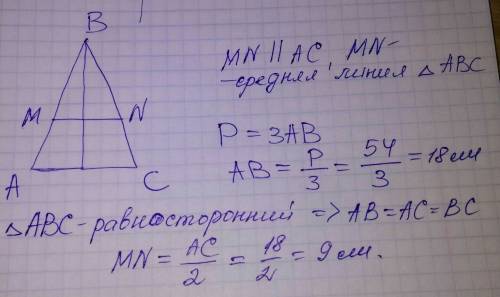 B
MN || AC, MN-
-средняя линия △ ABC
M N
P = 3AB
A C
AB = P/3 = 54/3 = 18 см
△ABC - равносторонний => AB=AC=BC
MN = AC/2 = 18/2 = 9 см.